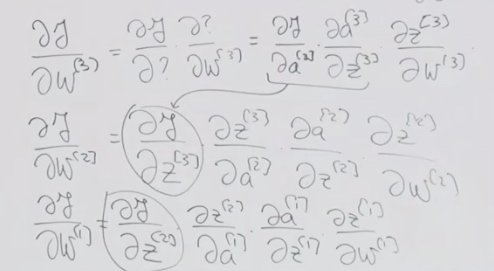 ∂J/∂w^[3] = ∂J/∂? · ∂?/∂w^[3] = ∂J/∂a^[3] · ∂a^[3]/∂z^[3] · ∂z^[3]/∂w^[3] .
∂J/∂w^[2] = ∂J/∂z^[3] · ∂z^[3]/∂a^[2] · ∂a^[2]/∂z^[2] · ∂z^[2]/∂w^[2]
∂J/∂w^[1] = ∂J/∂z^[2] · ∂z^[2]/∂a^[1] · ∂a^[1]/∂z^[1] · ∂z^[1]/∂w^[1]